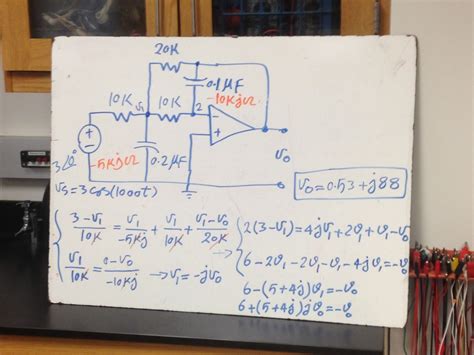 20K
0.1μF
-10KjΩ
10K
V₁
10K
2
-
+
+
-
3∠0°
-5KjΩ
0.2μF
v₀
v₀=0.53+j88
vs=3cos(1000t)
(3-v₁)/10K = v₁/-5Kj + v₁/10K + (v₁-v₀)/20K
v₁/10K = (0-v₀)/-10Kj → v₁=-jv₀
2(3-v₁)=4jv₁+2v₁+v₁-v₀
6-2v₁-2v₁-v₁-4jv₁=-v₀
6-(5+4j)v₁=-v₀
6+(5+4j)jv₀=-v₀